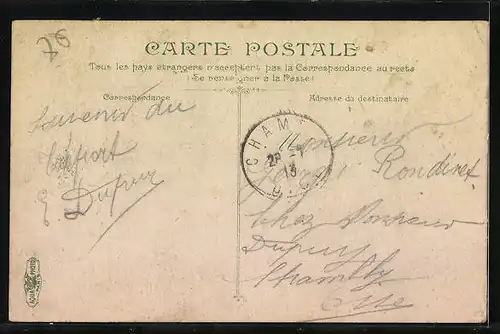 76
CARTE POSTALE
Tous les pays étrangers n'acceptent pas la Correspondance au recto
(Se renseigner à la Poste)
Correspondance
Adresse du destinataire
Souvenir du
E. Dupuy
CHAM
13
Monsieur
Rondinet
Chez Monsieur
Dupuy
Chambly
Oise